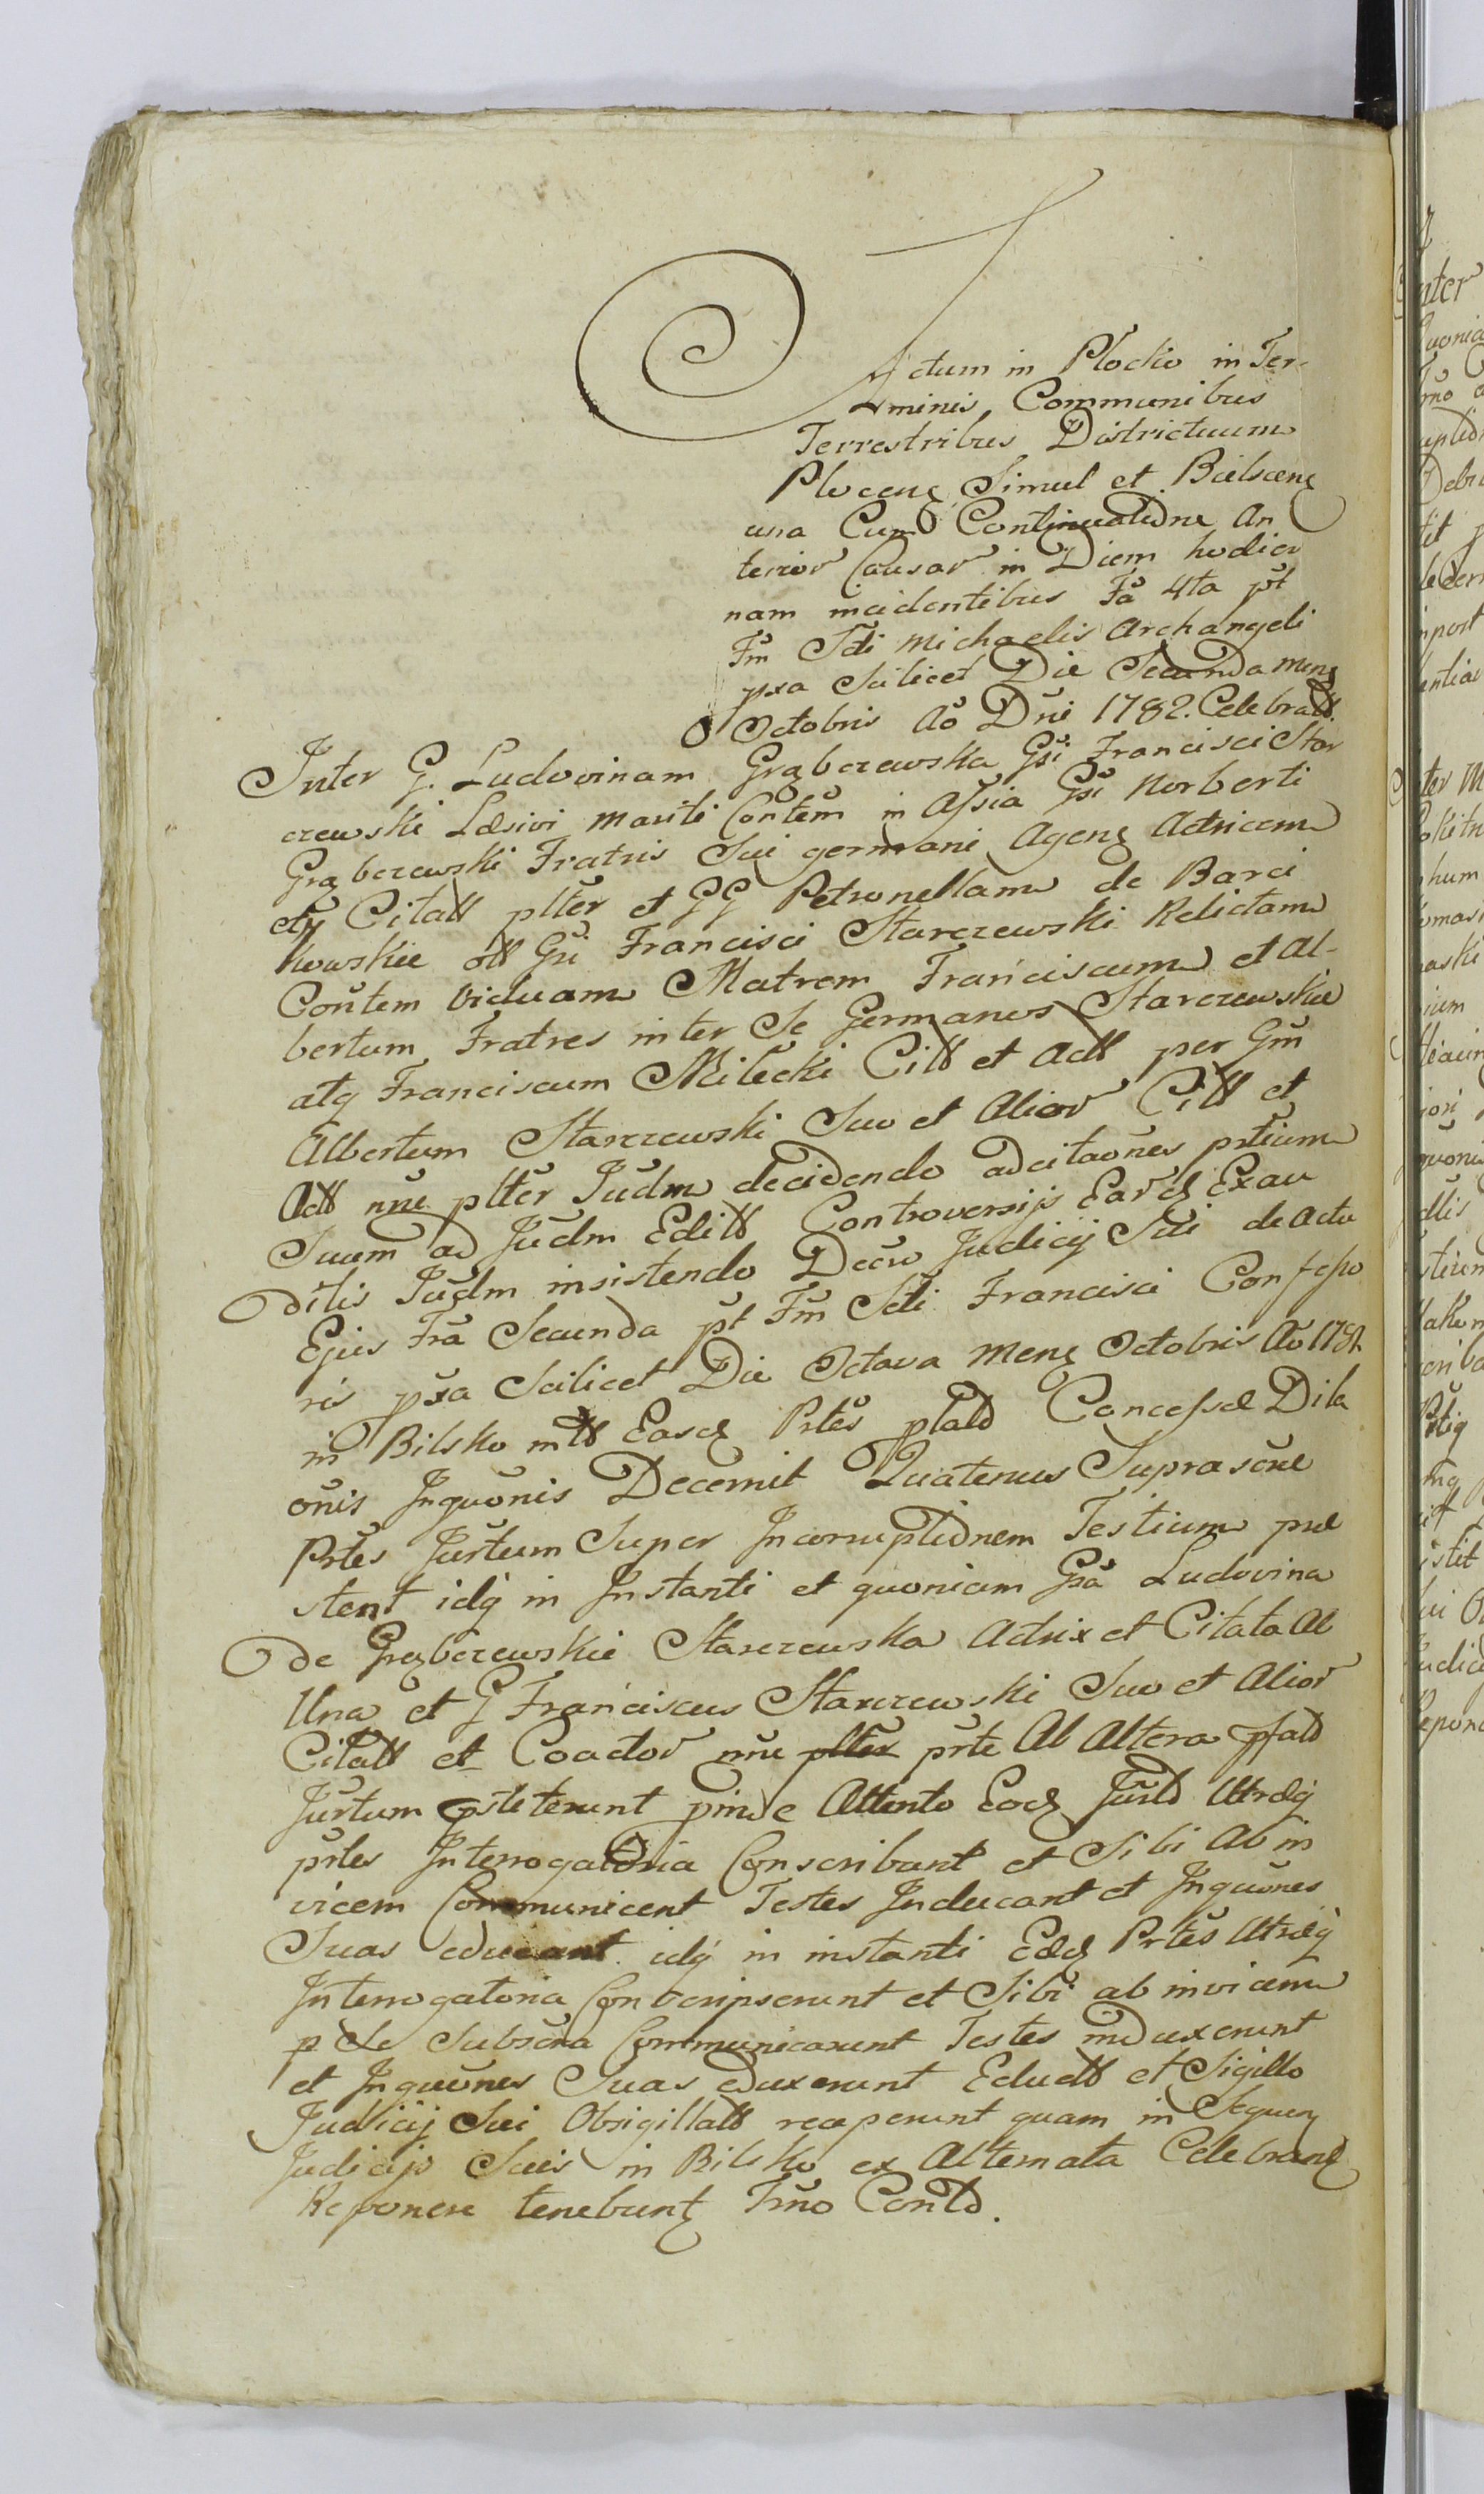 Actum in Plocko in Ter-
minis Communibus
Terrestribus Districtuum
Plocen Simul et Bielscen
una Cum Continuatione An
terior Causar in Diem hodier
nam incidentibus Fa 4ta pt
Fm Sti Michaelis Archangeli
pxa Scilicet Die Secunda Mens
Octobris Ao Dni 1782. Celebratt.
Inter G. Ludovinam Grąbczewska Gsi Francisci Star
czewski Læsivi mariti Contem in Assia Gsi Norberti
Grąbczewski Fratris Sui germani Agens Actricem
etq Citatt plter et GG Petronellam de Barci
kowskie ott Gsi Francisci Starczewski Relictam
Contem viduam Matrem Franciscum et Al-
bertum Fratres inter Se Germanos Starczewskie
atq Franciscum Milecki Citt et Actt per Gm
Albertum Starczewski Suo et Alior Citt et
Actt nne plter Judm decidendo adcitaones prtium
Suum ad Judm Editt Controversijs Eard Exau
ditis Judm insistendo Decro Judicij Sui de Actu
Ejus Fra Secunda pt Fm Sti Francisci Confesso
ris pxa Scilicet Die Octava Mens Octobris Ao 1781
in Bilsko intt Easd Prtes platd Concessæ Dila
onis Inquonis Decernit Quatenus Suprascræ
Prtes Jurtum Super Incorruptionem Testium præ
stent idq in Instanti et quoniam Gsa Ludovina
de Grąbczewskie Starczewska Actrix et Citata Ab
Una et G Franciscus Starczewski Suo et Alior
Citatt et Coactor nne plter prte Ab Altera pfatd
Jurtum pstiterunt pinde Attento Eod Jurtd Utræq
prtes Interrogatoria Conscribant et Sibi Ab in
vicem Communicent Testes Inducant et Inquones
Suas educant idq in instanti Eæd Prtes Utræq
Interrogatoria Conscripserunt et Sibi ab invicem
p Se Subscra Communicarunt Testes induxerunt
et Inquones Suas eduxerunt Eductt et Sigillo
Judicij Sui Obsigillatt receperunt quam in Sequen
Judicijs Suis in Bilsko ex Alternata Celebrand
Reponere tenebunt Trno Contd.